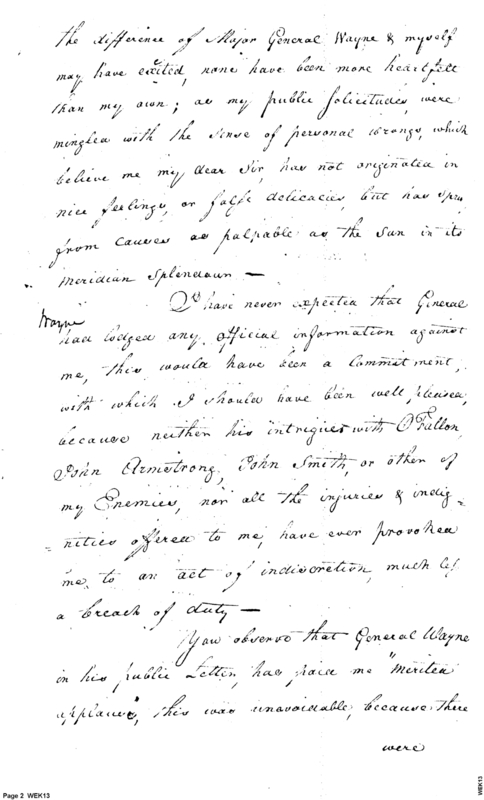 the difference of Major General Wayne & myself
may have excited, none have been more heartfelt
than my own; as my public solicitudes, were
mingled with the sense of personal wrongs, which
believe me my dear Sir, has not originated in
nice feelings, or false delicacies, but has spru
from causes as palpable as the Sun in its
meridian Splendour —
I have never expected that General
Wayne
had lodged any official information against
me, this would have been a Commitment,
with which I should have been well pleased,
because neither his intrigues with O'Fallon,
John Armstrong, John Smith, or other of
my Enemies, nor all the injuries & indig=
=nities offered to me, have ever provoked
me to an act of indiscretion, much less
a breach of duty —
You observe that General Wayne
in his public Letter, has paid me "merited
applause", this was unavoidable, because there
were
Page 2 WEK13
WEK13